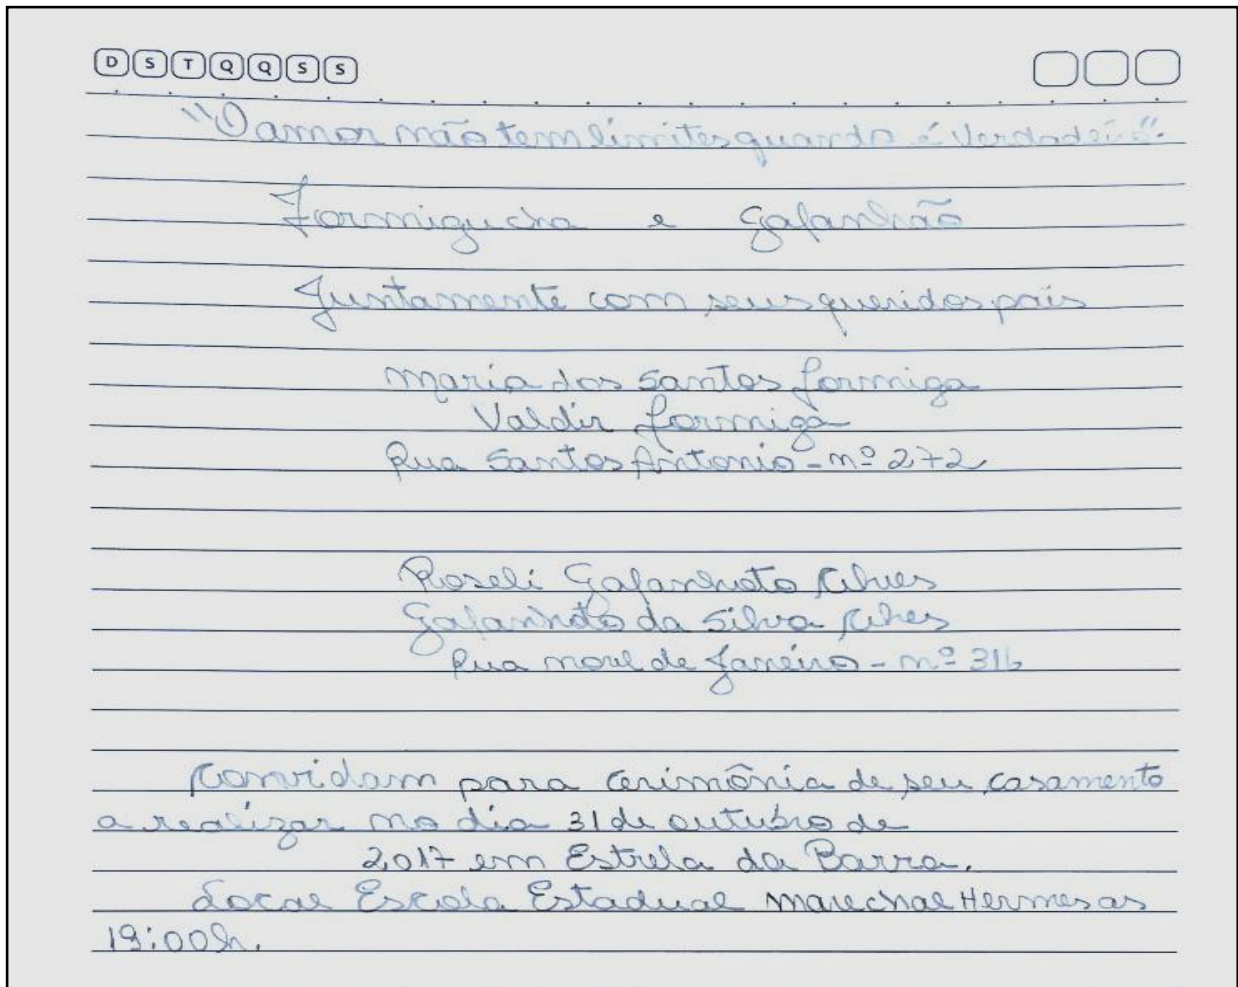 D S T Q Q S S
"O amor não tem limites quando é verdadeiro".
Formigucha e Gafanhão
Juntamente com seus queridos pais
Maria dos Santos formiga
Valdir formiga
Rua Santos Antonio - nº 272
Roseli Gafanhoto Alves
Gafanhoto da Silva Alves
Rua de Janeiro - nº 316
Convidam para cerimônia de seu casamento
a realizar no dia 31 de outubro de
2017 em Estrela da Barra.
Local Escola Estadual Marechal Hermes as
19:00h.